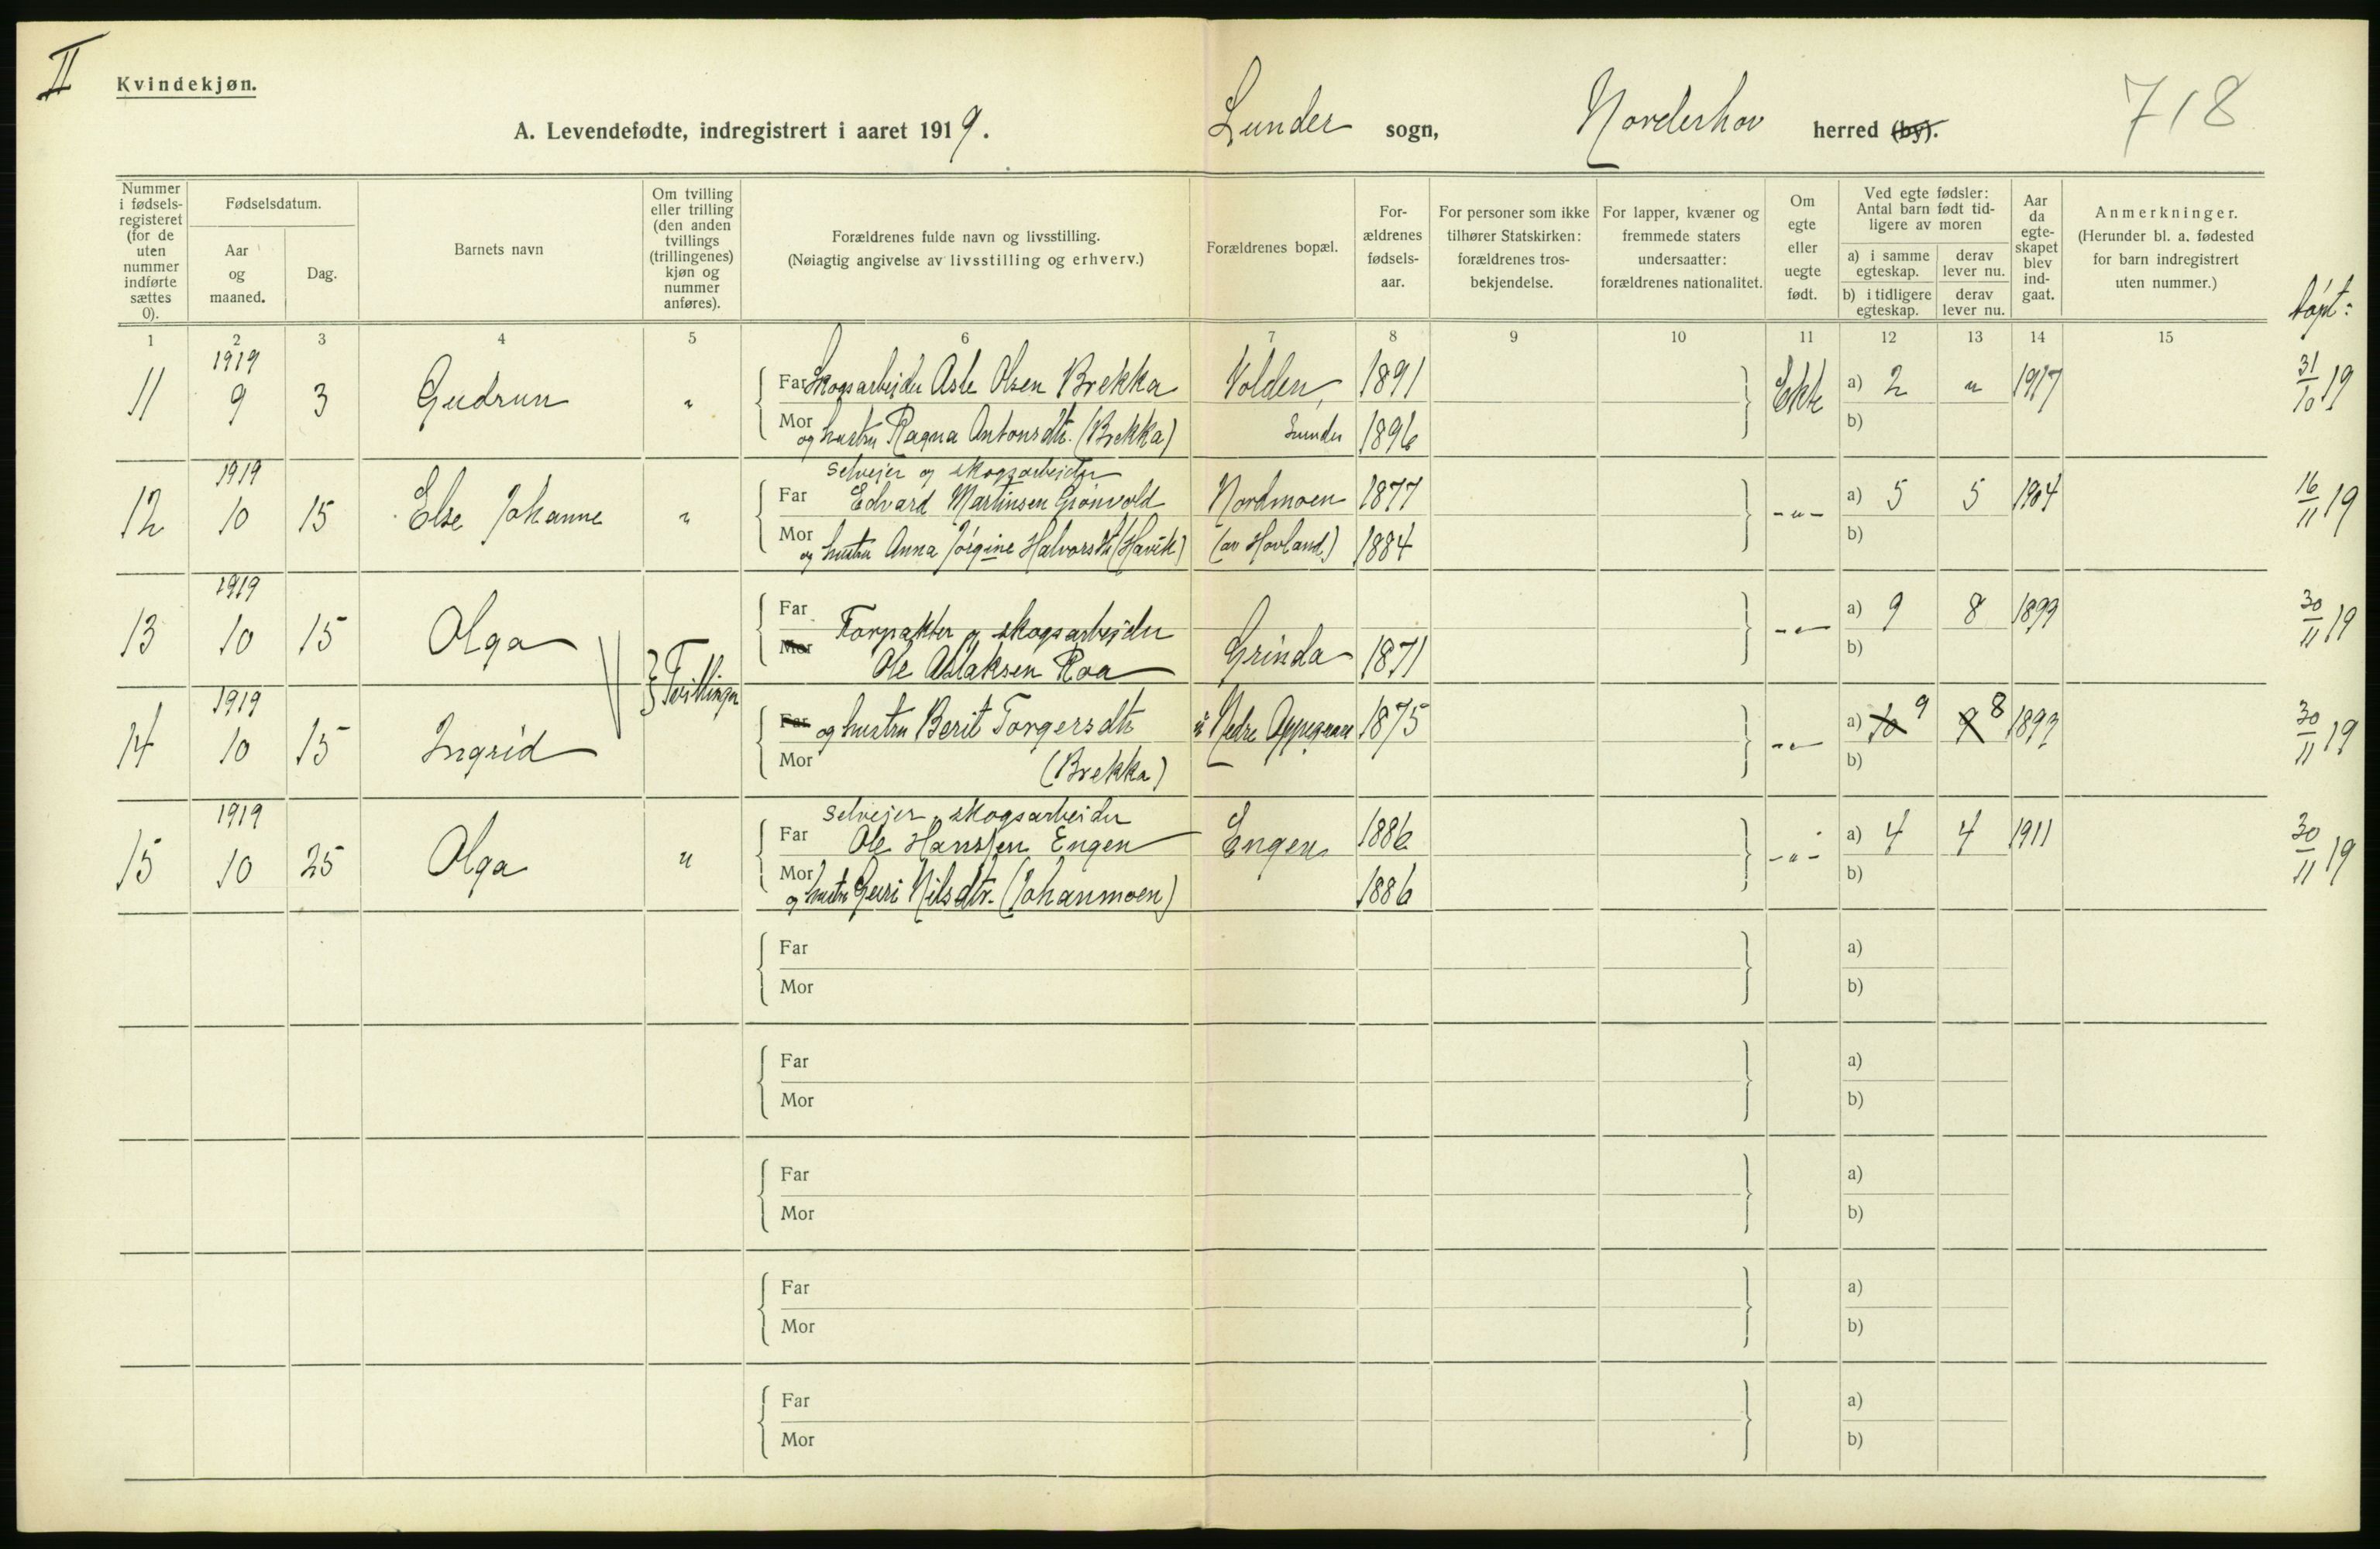 II
Kvindekjøn.
A. Levendefødte, indregistrert i aaret 1919.
Lunder sogn, Norderhov herred (by).
718
Nummer i fødsels-registeret (for de uten nummer indførte sættes 0).
Fødselsdatum.
Aar og maaned.
Dag.
Barnets navn
Om tvilling eller trilling (den anden tvillings (trillingenes) kjøn og nummer anføres).
Forældrenes fulde navn og livsstilling.
(Nøiagtig angivelse av livsstilling og erhverv.)
Forældrenes bopæl.
For-ældrenes fødsels-aar.
For personer som ikke tilhører Statskirken: forældrenes tros-bekjendelse.
For lapper, kvæner og fremmede staters undersaatter: forældrenes nationalitet.
Om egte eller uegte født.
Ved egte fødsler: Antal barn født tid-ligere av moren
a) i samme egteskap.
derav lever nu.
b) i tidligere egteskap.
derav lever nu.
Aar da egte-skapet blev ind-gaat.
Anmerkninger.
(Herunder bl. a. fødested for barn indregistrert uten nummer.)
døpt:
1 2 3 4 5 6 7 8 9 10 11 12 13 14 15
1919
11 9 3 Gudrun "
Far Skogsarbeider Asle Olsen Brekka Volden, 1891 Ekte a) 2 " 1917 31/10 19
Mor og hustru Ragna Antonsdtr. (Brekka) Lunder 1896 b)
1919
selveier og skogsarbeider
12 10 15 Else Johanne "
Far Edvard Martinsen Grønvold Nordmoen 1877 -"- a) 5 5 1904 16/11 19
Mor og hustru Anna Jørgine Halvorsdtr (Havik) (av Hovland) 1884 b)
1919
13 10 15 Olga } Tvillinger
Far Forpakter og skogsarbeider -"- a) 9 8 1899 30/11 19
Mor Ole Aslaksen Roa Grinda 1871 b)
1919
14 10 15 Ingrid
Far og hustru Berit Torgersdtr u/ Nedre 1875 -"- a) 10 9 9 8 1899 30/11 19
Mor (Brekka) b)
1919
selveier, skogsarbeider
15 10 25 Olga "
Far Ole Hanssen Engen Engen 1886 -"- a) 4 4 1911 30/11 19
Mor og hustru Guri Nilsdtr. (Johanmoen) 1886 b)
Far a)
Mor b)
Far a)
Mor b)
Far a)
Mor b)
Far a)
Mor b)
Far a)
Mor b)